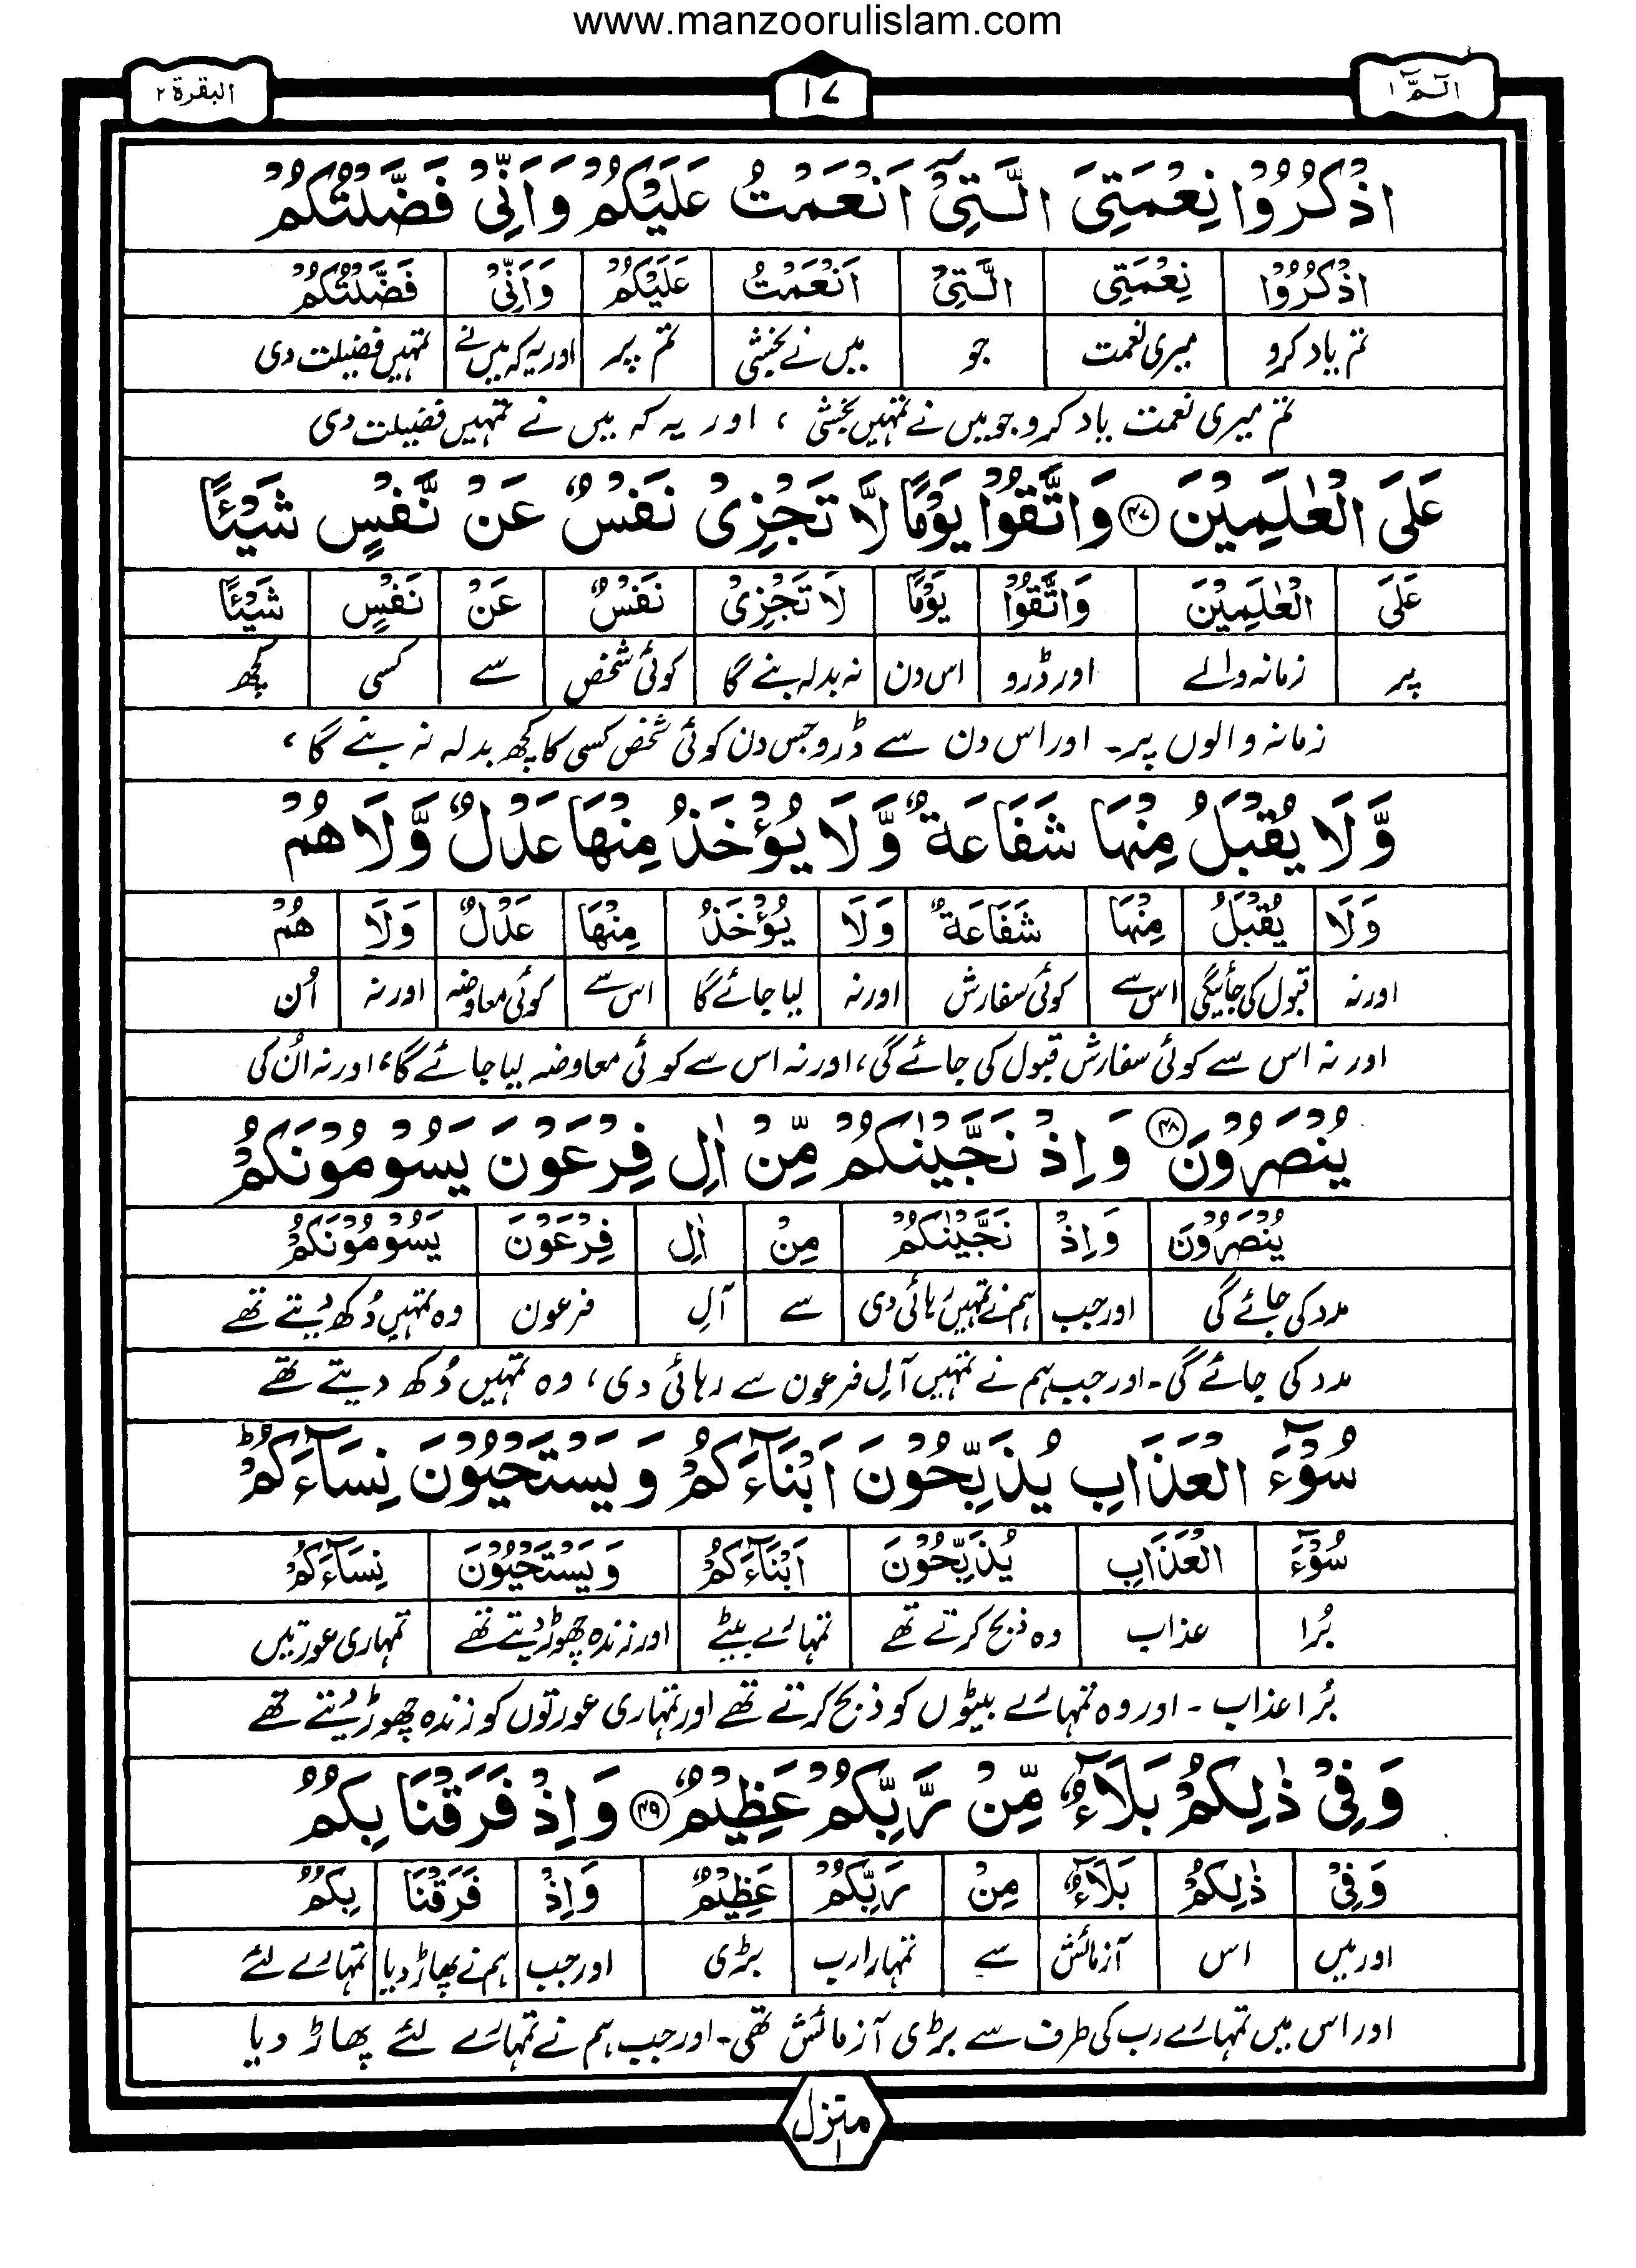 www.manzoorulislam.com
الٓمّٓ ۱
۱۷
البقرة ۲
اذْكُرُوْا نِعْمَتِىَ الَّتِىْٓ اَنْعَمْتُ عَلَيْكُمْ وَاَنِّىْ فَضَّلْتُكُمْ
اذْكُرُوْا نِعْمَتِىَ الَّتِىْ اَنْعَمْتُ عَلَيْكُمْ وَاَنِّىْ فَضَّلْتُكُمْ
تم یاد کرو میری نعمت جو میں نے بخشی تم پر اور یہ کہ میں نے تمہیں فضیلت دی
تم میری نعمت یاد کرو جو میں نے تمہیں بخشی ، اور یہ کہ میں نے تمہیں فضیلت دی
عَلَى الْعٰلَمِيْنَ ۴۷ وَاتَّقُوْا يَوْمًا لَّا تَجْزِىْ نَفْسٌ عَنْ نَّفْسٍ شَيْـًٔا
عَلَى الْعٰلَمِيْنَ وَاتَّقُوْا يَوْمًا لَا تَجْزِىْ نَفْسٌ عَنْ نَفْسٍ شَيْـًٔا
پر زمانہ والے اور ڈرو اس دن نہ بدلہ بنے گا کوئی شخص سے کسی کچھ
زمانہ والوں پر۔ اور اس دن سے ڈرو جس دن کوئی شخص کسی کا کچھ بدلہ نہ بنے گا ،
وَّلَا يُقْبَلُ مِنْهَا شَفَاعَةٌ وَّلَا يُؤْخَذُ مِنْهَا عَدْلٌ وَّلَا هُمْ
وَلَا يُقْبَلُ مِنْهَا شَفَاعَةٌ وَلَا يُؤْخَذُ مِنْهَا عَدْلٌ وَلَا هُمْ
اور نہ قبول کی جائیگی اس سے کوئی سفارش اور نہ لیا جائے گا اس سے کوئی معاوضہ اور نہ اُن
اور نہ اس سے کوئی سفارش قبول کی جائے گی، اور نہ اس سے کوئی معاوضہ لیا جائے گا، اور نہ اُن کی
يُنْصَرُوْنَ ۴۸ وَ اِذْ نَجَّيْنٰكُمْ مِّنْ اٰلِ فِرْعَوْنَ يَسُوْمُوْنَكُمْ
يُنْصَرُوْنَ وَ اِذْ نَجَّيْنٰكُمْ مِنْ اٰلِ فِرْعَوْنَ يَسُوْمُوْنَكُمْ
مدد کی جائے گی اور جب ہم نے تمہیں رہائی دی سے آلِ فرعون وہ تمہیں دُکھ دیتے تھے
مدد کی جائے گی۔ اور جب ہم نے تمہیں آلِ فرعون سے رہائی دی ، وہ تمہیں دُکھ دیتے تھے
سُوْٓءَ الْعَذَابِ يُذَبِّحُوْنَ اَبْنَآءَكُمْ وَ يَسْتَحْيُوْنَ نِسَآءَكُمْ ؕ
سُوْٓءَ الْعَذَابِ يُذَبِّحُوْنَ اَبْنَآءَكُمْ وَ يَسْتَحْيُوْنَ نِسَآءَكُمْ
بُرا عذاب وہ ذبح کرتے تھے تمہارے بیٹے اور زندہ چھوڑ دیتے تھے تمہاری عورتیں
بُرا عذاب ۔ اور وہ تمہارے بیٹوں کو ذبح کرتے تھے اور تمہاری عورتوں کو زندہ چھوڑ دیتے تھے
وَ فِىْ ذٰلِكُمْ بَلَآءٌ مِّنْ رَّبِّكُمْ عَظِيْمٌ ۴۹ وَ اِذْ فَرَقْنَا بِكُمُ
وَ فِىْ ذٰلِكُمْ بَلَآءٌ مِنْ رَبِّكُمْ عَظِيْمٌ وَ اِذْ فَرَقْنَا بِكُمُ
اور میں اس آزمائش سے تمہارا رب بڑی اور جب ہم نے پھاڑ دیا تمہارے لئے
اور اس میں تمہارے رب کی طرف سے بڑی آزمائش تھی۔ اور جب ہم نے تمہارے لئے پھاڑ دیا
منزل ۱